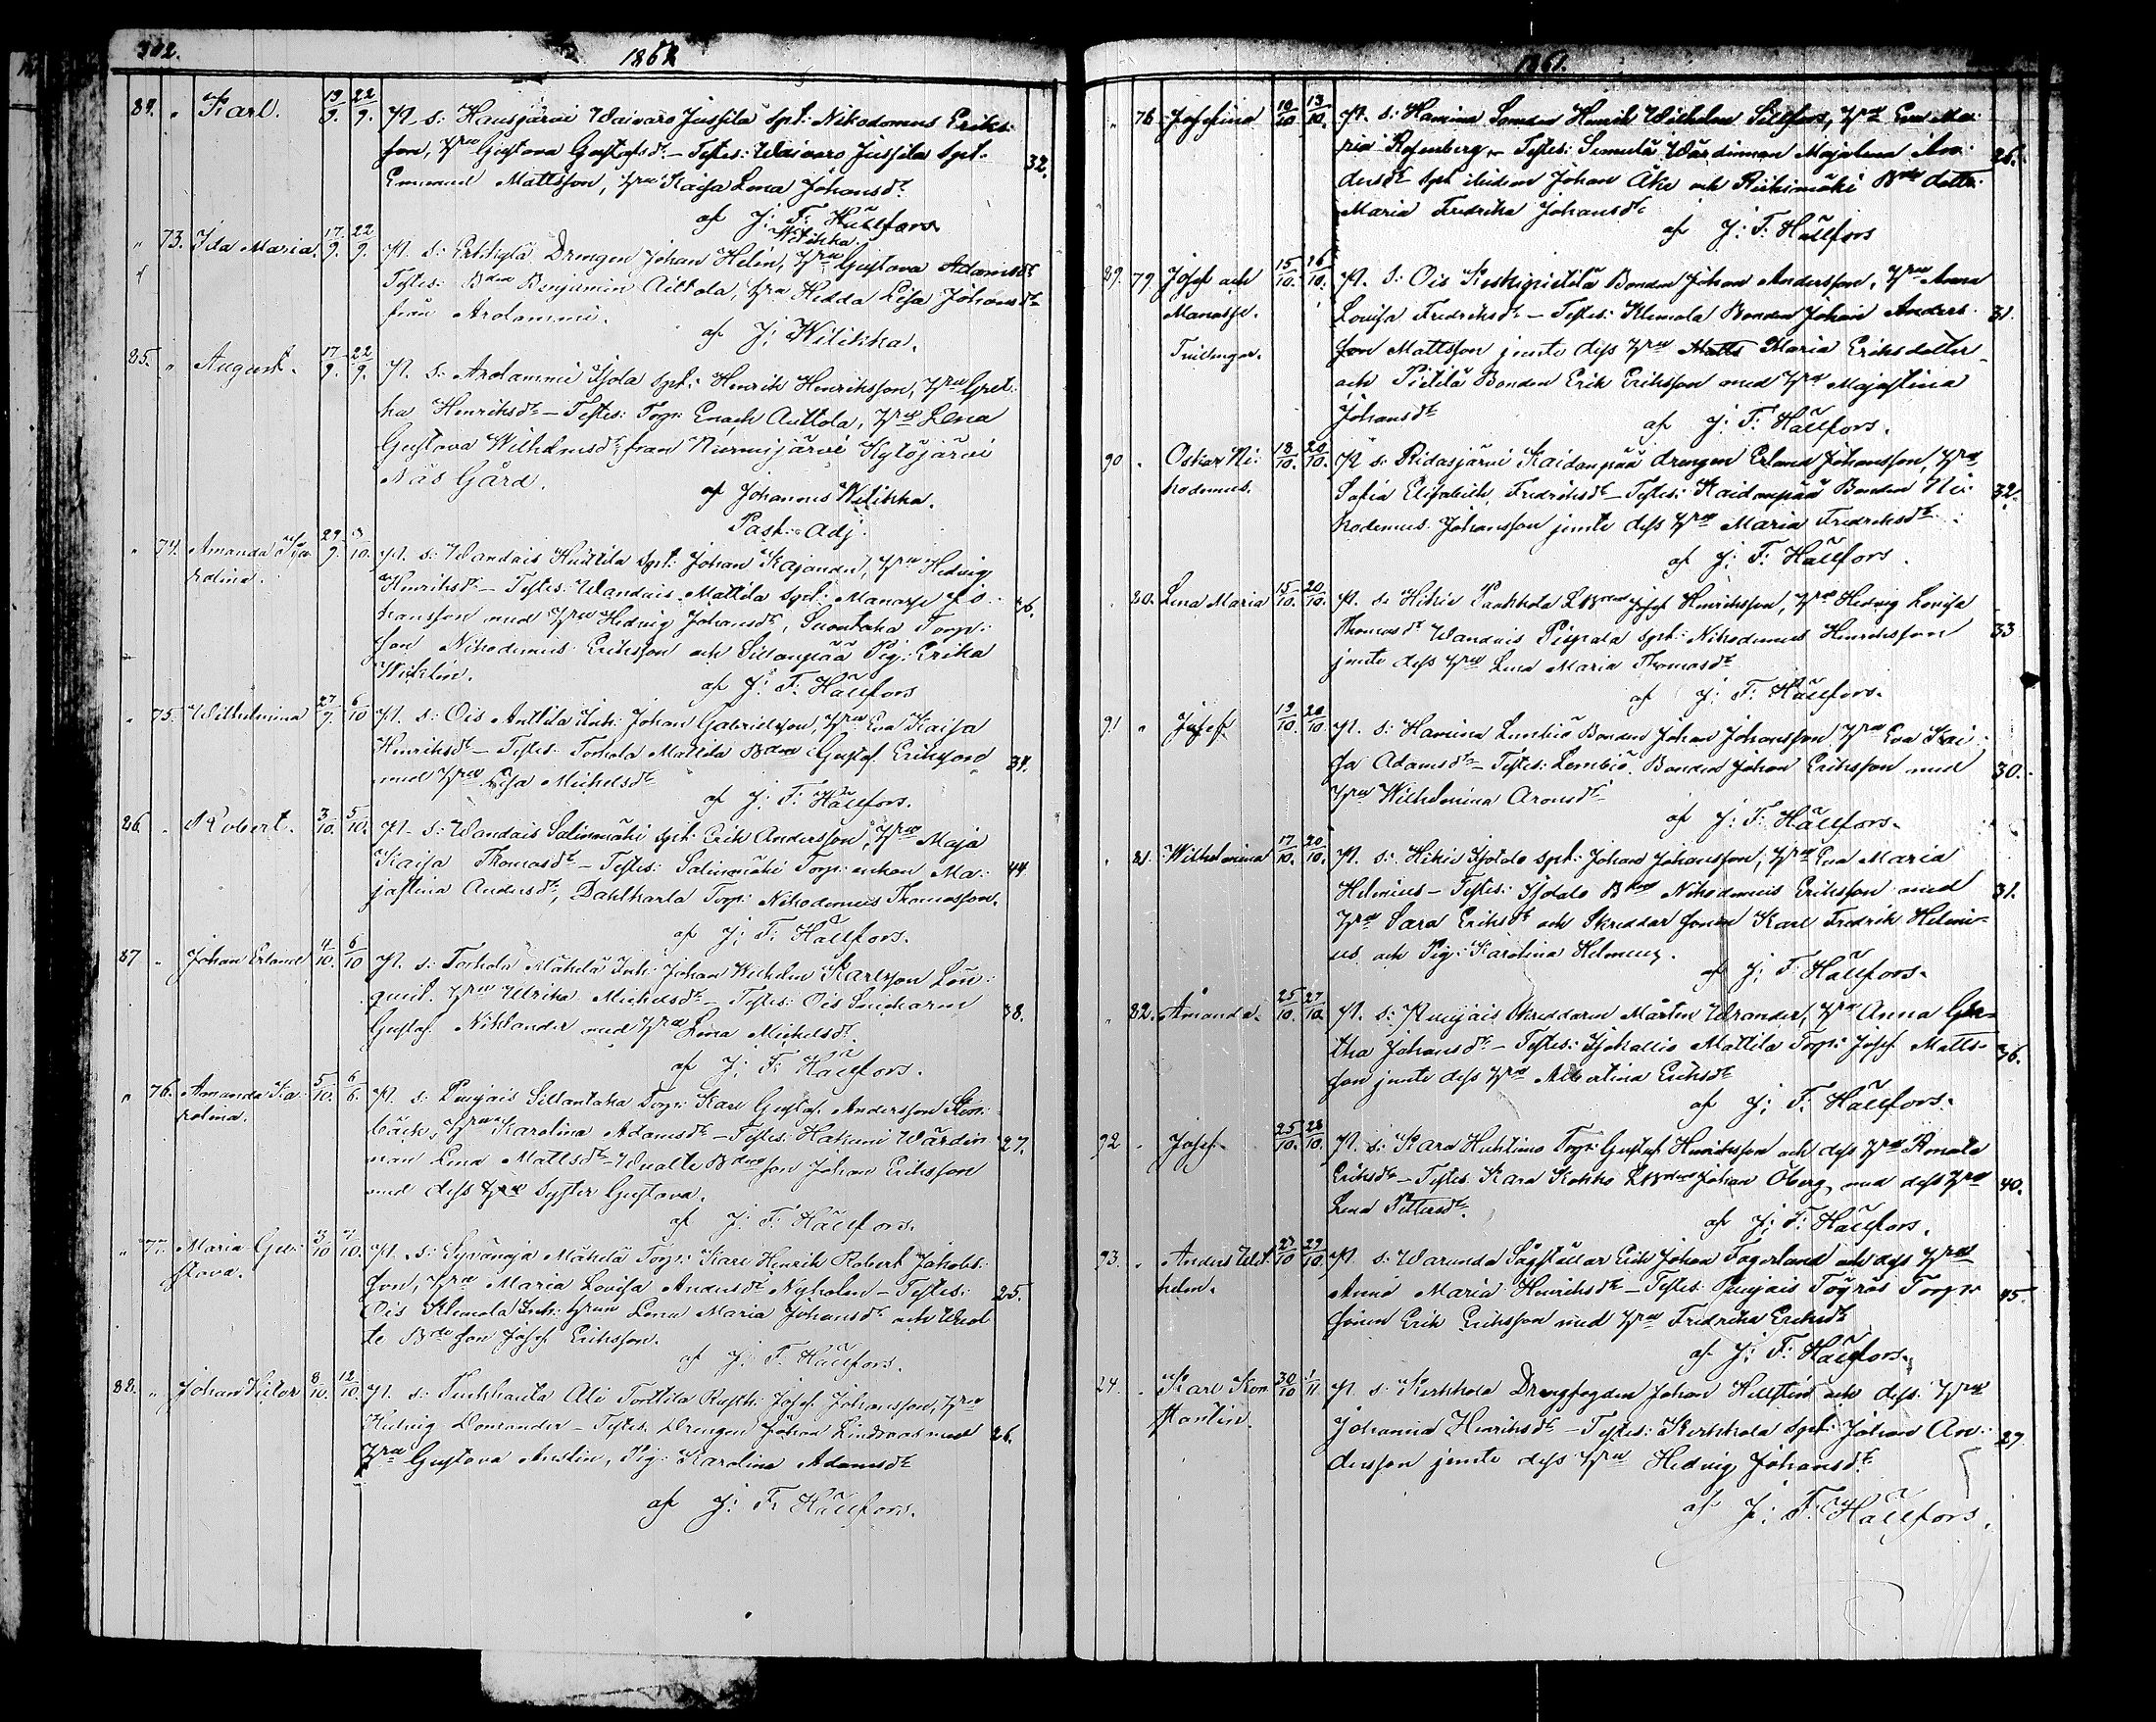 302.
1861
84. " Karl. 19/9. 22/9. N. s: Hausjärvi Waivaro Jussila Spt: Nikodemus Eriks:
son, Hru Gustava Gustafsdr. – Testes: Waivaro Jussila Spt. 32.
Emanuel Mattsson, Hru Kaisa Lena Johansdr
af J: F: Hällfors
Witikka.
" 73. Ida Maria. 17/9. 22/9. N. s: Erkkylä Drengen Johan Helin, Hru Gustava Adamsdr
Testes: Bden Benjamin Aittola, Hru Hedda Lisa Johansdr
från Arolammi.
af J: Witikka.
85. " August. 17/9. 22/9. N. s: Arolammi Spt: Henrik Henriksson, Hru Gret:
ha Henriksdr – Testes: Torp: Enoch Aittola, Hru Lena
Gustava Wilhelmsdr från Nurmijärvi Kytöjärvi
Näs Gård.
af Johannes Witikka.
Past: Adj.
" 74. Amanda Ka: 29/9. /10. N. s: Wandais Huttila Spt: Johan Kajander, Hru Hedvig
rolina. Henriksdr – Testes: Wandais Mattila Spt: Manasse Jo:
hansson med Hru Hedvig Johansdr, Torp:
son Nikodemus Eriksson och Sillanpää Pig: Erika
Wiklin.
af J: F: Hällfors
" 75. Wilhelmina 27/9. 6/10 N. s: Ois Anttila Inh: Johan Gabrielsson, Hru Eva Kaisa
Henriksdr – Testes: Torhola Mattila Bden Gustaf Eriksson 34.
med Hru Lisa Michelsdr
af J: F: Hällfors.
86. " Robert. 3/10. 5/10. N. s: Wandais Salinmäki Spt: Erik Andersson, Hru Maja
Kaisa Thomasdr – Testes: Salinmäki Torp: enkan Ma: 44
jastina Andersdr, Dahlkarla Torp: Nikodemus Thomasson.
af J: F: Hällfors.
87 " Johan Erland 4/10. 6/10 N. s: Torhola Mäkelä Inh: Johan Wilhelm Karlsson Lön:
qvist. Hru Ulrika Michelsdr – Testes: Ois Snickaren 38.
Gustaf Niklander med Hru Lena Michelsdr.
af J: F: Hällfors.
" 76. Amanda Ka: 5/10. 6/6. N. s: Puujais Sillantaka Torp: Karl Gustaf Andersson Sten:
rolina. bäck, Hru Karolina Adamsdr – Testes: Hakumi Wärdin
nan Lena Mattsdr Bden son Johan Eriksson 27.
med dess Syster Gustava.
af J: F: Hällfors.
" 77. Maria Gu: 3/10 7/10. N. s: Syvänoja Mäkelä Torp: Karl Henrik Robert Jakobs:
stava. son, Hru Maria Lovisa Andersdr Nyholm – Testes: 25.
Ois Klemola Inh: Hrun Lena Maria Johansdr och
Bde son Josef Eriksson.
af J: F: Hällfors.
88. " Johan Victor 8/10. 12/10. N. s: Turkhauta Ali Torttila Rusth: Josef Johansson, Hru
Hedvig – Testes: Drengen Johan Lindroos med 26.
Hru Gustava, Pig: Karolina Adamsdr
af J: F: Hällfors.
1861.
" 78 Josefina 10/10 13/10. N. s: Hamina Henrik Wilhelm Sillfors, Hru Eva Ma:
ria Rosenberg – Testes: Simula Wärdinnan Majalena An: 26.
dersdr Spt ibidem Johan Åke och Riihimäki Bde dotter
Maria Fredrika Johansdr
af J: F: Hällfors
89. 79. Josef och 15/10. 16/10. N. s: Ois Koskipietilä Bonden Johan Andersson, Hru Anna
Manasse. Lovisa Fredriksdr – Testes: Klemola Bonden Johan Anders: 31.
Tvillingar. son Mattsson jemte dess Hru Maria Eriksdotter
och Pietilä Bonden Erik Eriksson med Hru Majastina
Johansdr
af J: F: Hällfors.
90 " Oskar Ni: 18/10. 20/10. N. s: Ridasjärvi Kaidanpää drengen Erland Johansson, Hru
kodemus. Sofia Elisabeth Fredriksdr – Testes: Kaidanpää Bonden Ni: 32.
kodemus Johansson jemte dess Hru Maria Fredriksdr
af J: F: Hällfors.
80. Lena Maria 15/10. 20/10. N. s: Hikiä Josef Henriksson, Hru Hedvig Lovisa
Thomasdr Wandais Pispala Spt: Nikodemus Henriksson 33
jemte dess Hru Lena Maria Thomasdr
af J: F: Hällfors.
91 " Josef 19/10. 20/10 N. s: Hamina Lembiö Bonden Johan Johansson, Hru Eva Kai:
sa Adamsdr – Testes: Lembiö Bonden Johan Eriksson med 30.
Hru Wilhelmina Aronsdr
af J: F: Hällfors.
" 81. Wilhelmina 17/10. 20/10. N. s: Hikiä Spt: Johan Johansson, Hru Eva Maria
Helenius – Testes: Bden Nikodemus Eriksson med 31.
Hru Sara Eriksdr och Skreddar sonen Karl Fredrik Heleni:
us och Pig: Karolina Helenius.
af J: F: Hällfors.
" 82. Amanda. 25/10. 27/10. N. s: Puujais Skreddaren Mårten Urander, Hru Anna Gre
tha Johansdr – Testes: Mattila Torp: Josef Matts: 36.
son jemte dess Hru Albertina Eriksdr
af J: F: Hällfors.
92 " Josef 25/10. 28/10. N. s: Kara Huhtimo Torp: Gustaf Henriksson och dess Hru Renata
Eriksdr – Testes: Kara Kokko Johan Öberg, med dess Hru 40.
Lena Pettersdr.
af J: F: Hällfors.
93. " Anders Wil: 27/10 29/10. N. s: Warunda Sågställar Erik Johan Fagerlund och dess Hru
helm. Anna Maria Henriksdr – Testes: Puujais Töyräs Torp: 45.
sonen Erik Eriksson med Hru Fredrika Eriksdr
af J: F: Hällfors.
24. " Karl Kon 30/10 1/11. N. s: Kerkkola Drengfogden Johan Hellsten och dess Hru
stantin. Johanna Henriksdr – Testes: Kerkkola Spt: Johan An: 27
dersson jemte dess Hru Hedvig Johansdr.
af J: F: Hällfors.